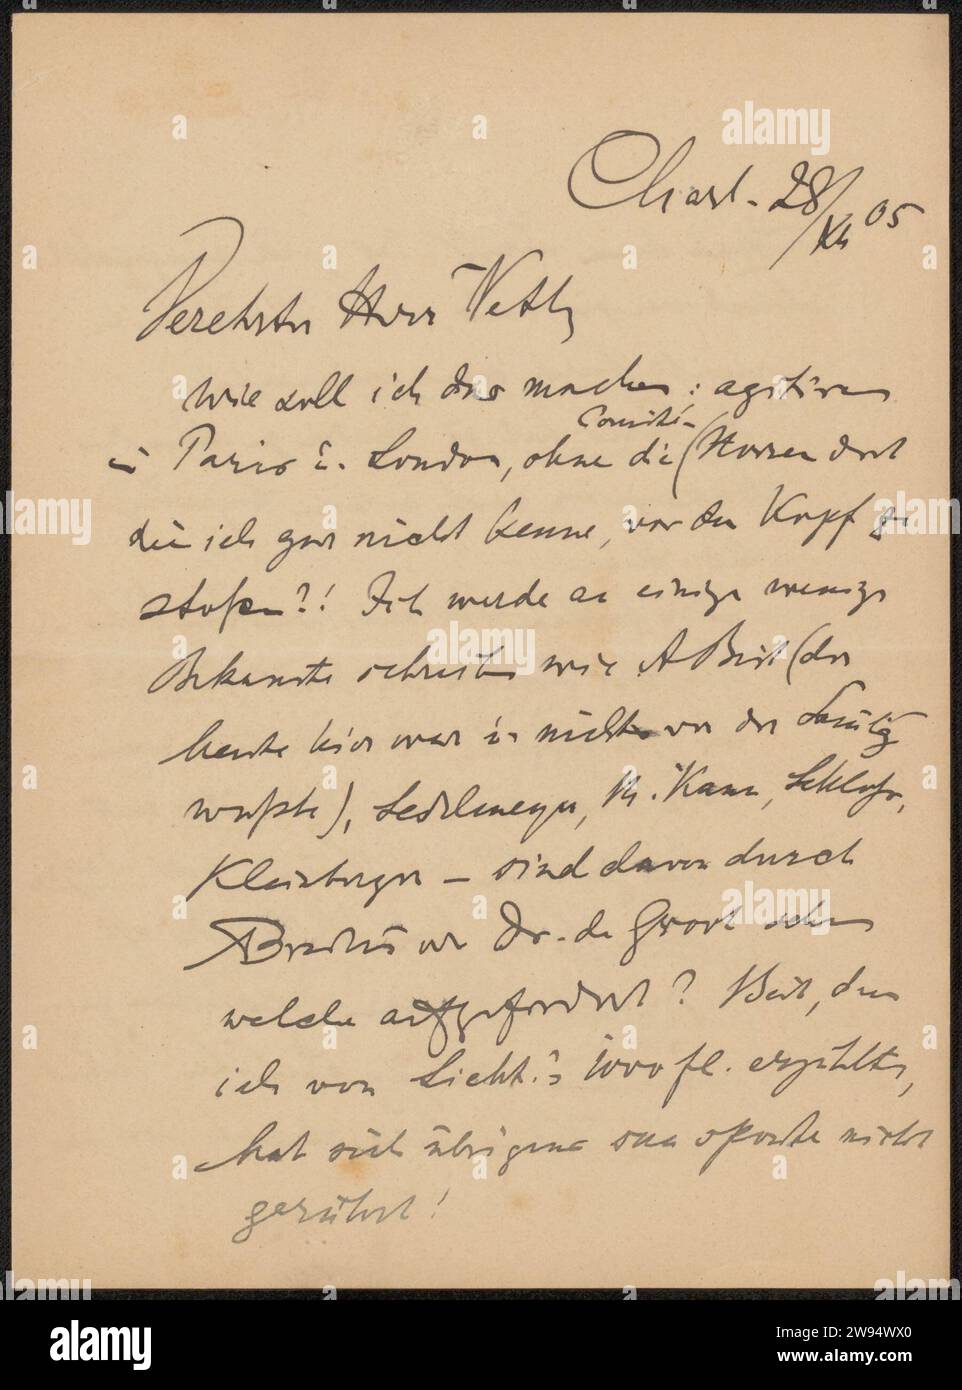 Charl. 28/XII 05
Verehrter Herr Veth,
Wie soll ich das machen: agitiren
in Paris u. London, ohne die (Comité-) Herren dort
die ich gar nicht kenne, vor den Kopf zu
stoßen?! Ich werde an einige wenige
Bekannte schreiben wie A Beit (der
heute hier war u. nichts von der Samlg
wußte), Sedelmeyer, M. Kann, Schloss,
Kleinberger – sind davon durch
Bredius oder Dr. de Groot schon
welche aufgefordert? Beit, dem
ich von Licht.'s 1000 fl. erzählte,
hat sich übrigens sua sponte nicht
gerührt!
alamy
Image ID: 2W94WX0
www.alamy.com